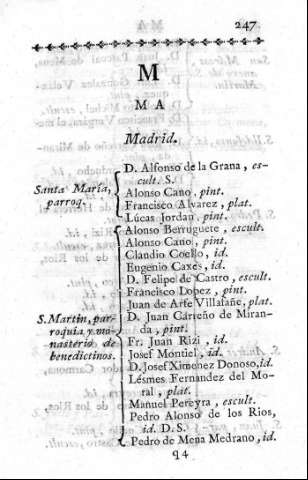 247
M
M A
Madrid.
Santa María,
parroq.
D. Alfonso de la Grana, es-
cult. S.
Alonso Cano, pint.
Francisco Alvarez, plat.
Lúcas Jordan, pint.
S. Martin, par-
roquia y mo-
nasterio de
benedictinos.
Alonso Berruguete, escult.
Alonso Cano, pint.
Claudio Coello, id.
Eugenio Caxes, id.
D. Felipe de Castro, escult.
Francisco Lopez, pint.
Juan de Arfe Villafañe, plat.
D. Juan Carreño de Miran-
da, pint.
Fr. Juan Rizi, id.
Josef Montiel, id.
D. Josef Ximenez Donoso, id.
Lésmes Fernandez del Mo-
ral, plat.
Manuel Pereyra, escult.
Pedro Alonso de los Rios,
id. D. S.
Pedro de Mena Medrano, id.
Q4